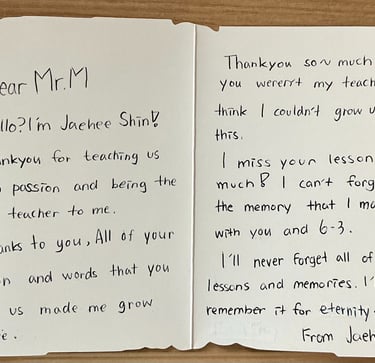 ear Mr.M
llo? I'm Jaehee Shin!
nkyou for teaching us
passion and being the
teacher to me.
anks to you, All of your
on and words that you
us made me grow
e.
Thankyou so~ much
you weren't my teach
think I couldn't grow u
this.
I miss your lesson
much! I can't forg
the memory that I ma
with you and 6-3.
I'll never forget all of
lessons and memories. I'
remember it for eternity
From Jaeh